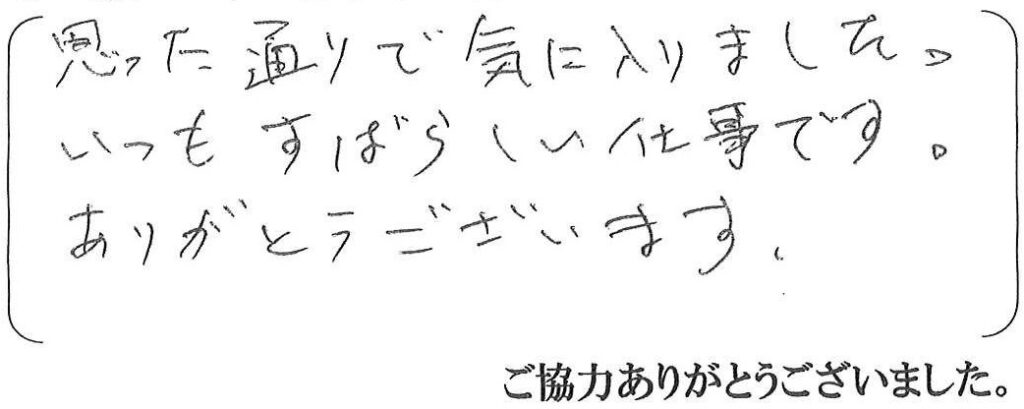 思った通りで気に入りました。
いつもすばらしい仕事です。
ありがとうございます.
ご協力ありがとうございました。